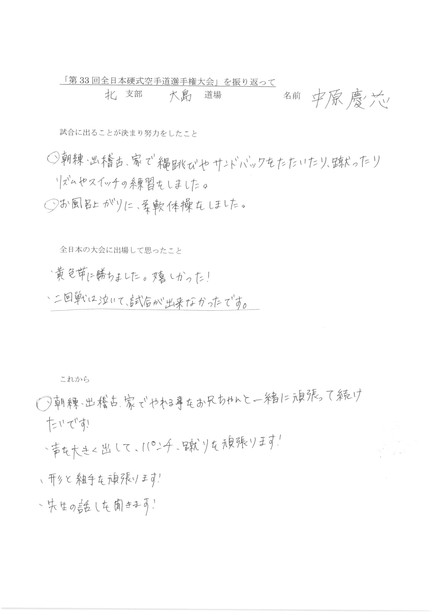 「第33回全日本硬式空手道選手権大会」を振り返って
北 支部 大島 道場 名前 中原慶芯
試合に出ることが決まり努力をしたこと
・朝練・出稽古、家で縄跳びやサンドバックをたたいたり、蹴ったり
リズムやスイッチの練習をしました。
・お風呂上がりに、柔軟体操をしました。
全日本の大会に出場して思ったこと
・黄色帯に勝ちました。嬉しかった!
・二回戦は泣いて、試合が出来なかったです。
これから
・朝練・出稽古、家でやれる事をお兄ちゃんと一緒に頑張って続け
たいです!
・声を大きく出して、パンチ、蹴りを頑張ります!
・形と組手を頑張ります!
・先生の話しを聞きます!